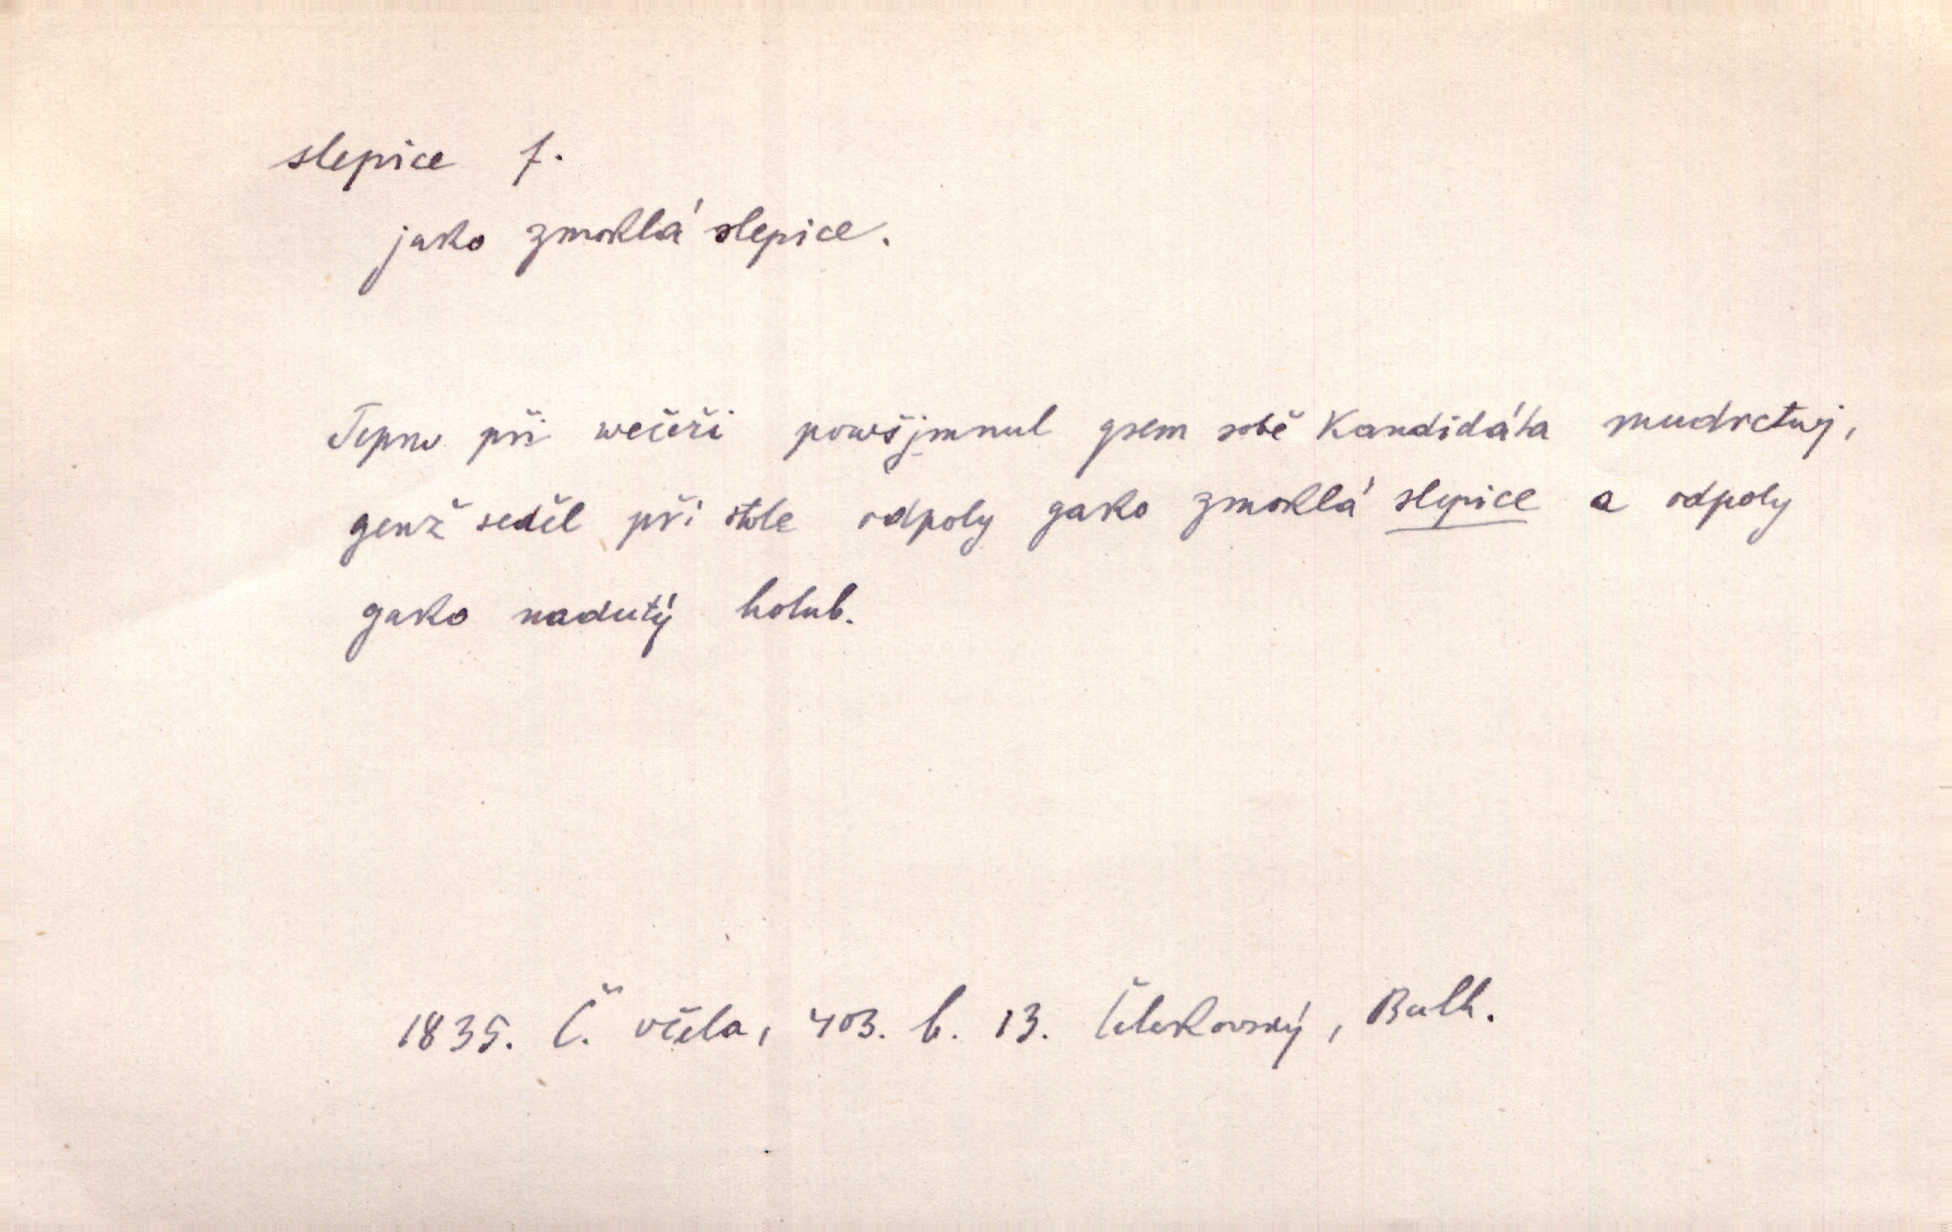 slepice f.
jako zmoklá slepice.
Teprw při wečeři powšjmnul gsem sobě Kandidáta mudrctwj,
genž seděl při stole odpoly gako zmoklá slepice a odpoly
gako nadutý holub.
1835. Č. včela, 403. b. 13. Čelakovský, Bulh.